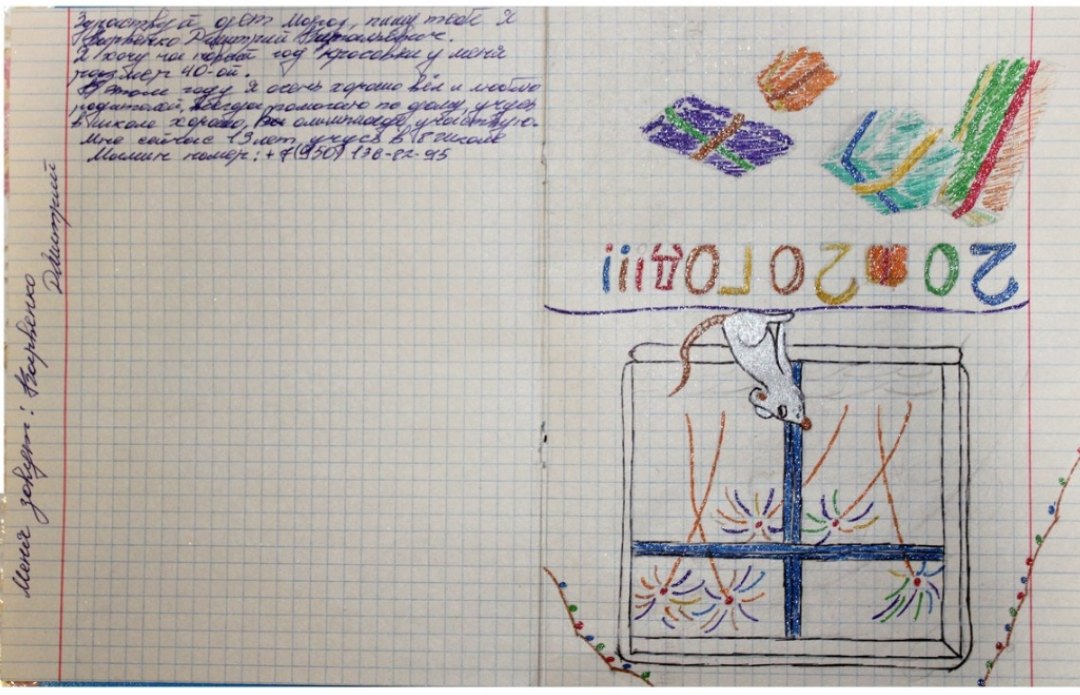 Здраствуй дет Мороз, пишу тебе я
Карпенко Дмитрий Витальевич.
Я хочу на новый год кросовки у меня
размер 40-ой.
В этом году я очень хорошо вёл и люблю
родителей, всегда помогаю по дому, учусь
в школе хорошо, на олимпиадах учавствую.
Мне сейчас 13 лет учусь в 8 школе
Мамин номер: +7(950)
Меня зовут: Карпенко
Дмитрий
2020 ГОД!!!!